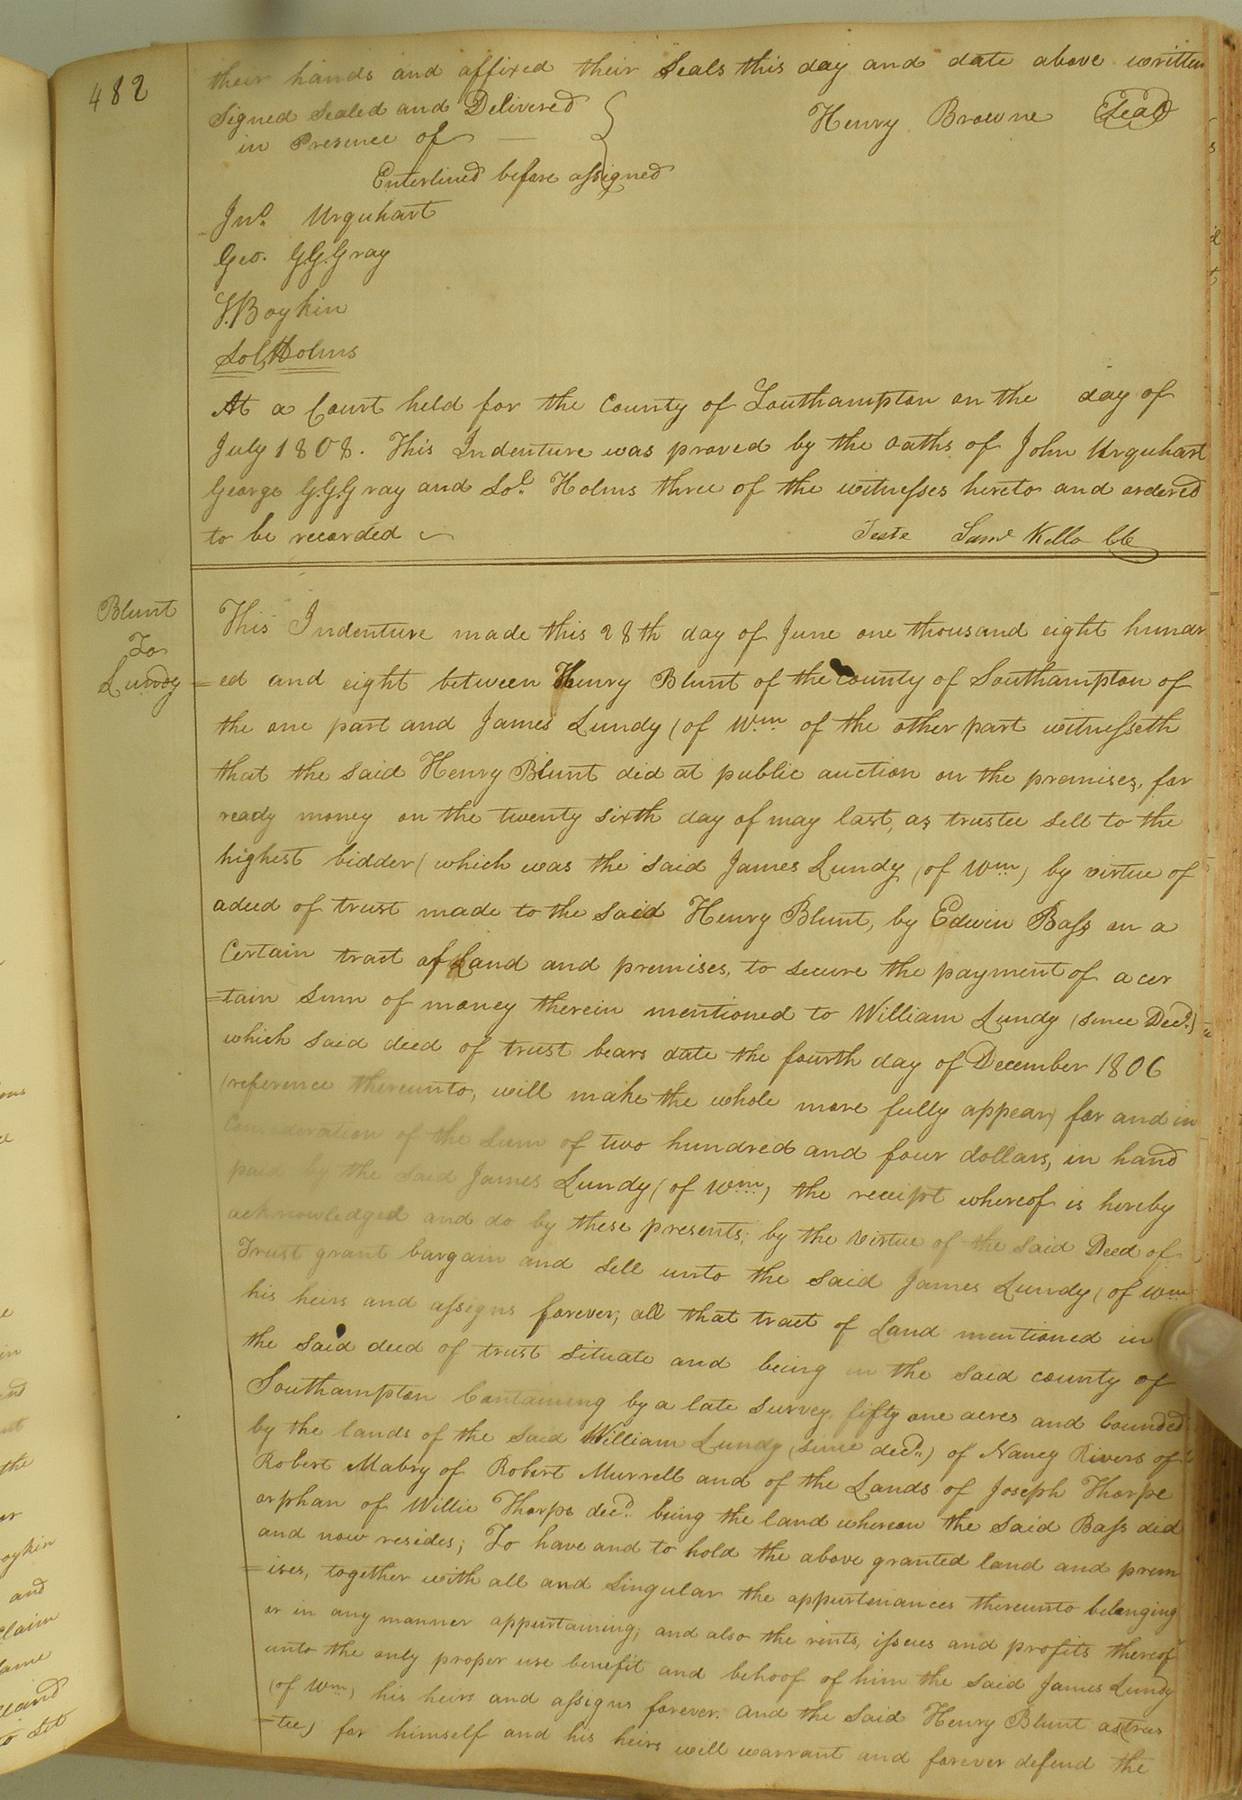 482
their hands and affixed their Seals this day and date above written
Signed Sealed and Delivered
in Presence of
Henry Browne Seal
Enterlined before assigned
Jno. Urquhart
Geo. G.G. Gray
S. Boykin
Sol. Holms
At a Court held for the County of Southampton on the day of
July 1808. This Indenture was proved by the oaths of John Urquhart
George G.G. Gray and Sol. Holms three of the witnesses hereto and ordered
to be recorded
Teste Saml Kello Clk
Blunt
To
Lundy
This Indenture made this 28th day of June one thousand eight hundr
=ed and eight between Henry Blunt of the County of Southampton of
the one part and James Lundy (of Wm. of the other part witnesseth
that the said Henry Blunt did at public auction on the premises, for
ready money on the twenty sixth day of may last, as trustee sell to the
highest bidder (which was the said James Lundy (of Wm.) by virtue of
adeed of trust made to the said Henry Blunt, by Edwin Bass on a
Certain tract of Land and premises, to secure the payment of a cer
=tain sum of money therein mentioned to William Lundy (since Decd.)
which said deed of trust bears date the fourth day of December 1806
(reference thereunto, will make the whole more fully appear) for and in
Consideration of the Sum of two hundred and four dollars, in hand
paid by the said James Lundy (of Wm.) the receipt whereof is hereby
acknowledged and do by these presents; by the virtue of the said Deed of
Trust grant bargain and sell unto the said James Lundy (of Wm
his heirs and assigns forever; all that tract of Land mentioned in
the said deed of trust situate and being in the said county of
Southampton Containing by a late survey, fifty one acres and bounded
by the lands of the said William Lundy (since decd.) of Nancy Rivers of
Robert Mabry of Robert Murrell and of the Lands of Joseph Thorpe
orphan of Willie Thorpe decd. being the land whereon the said Bass did
and now resides; To have and to hold the above granted land and prem
=ises, together with all and Singular the appurtenances thereunto belonging
or in any manner appurtaining; and also the rents, issues and profits thereof
unto the only proper use benefit and behoof of him the said James Lundy
(of Wm.) his heirs and assigns forever. and the said Henry Blunt as (trus
=tee) for himself and his heirs will warrant and forever defend the